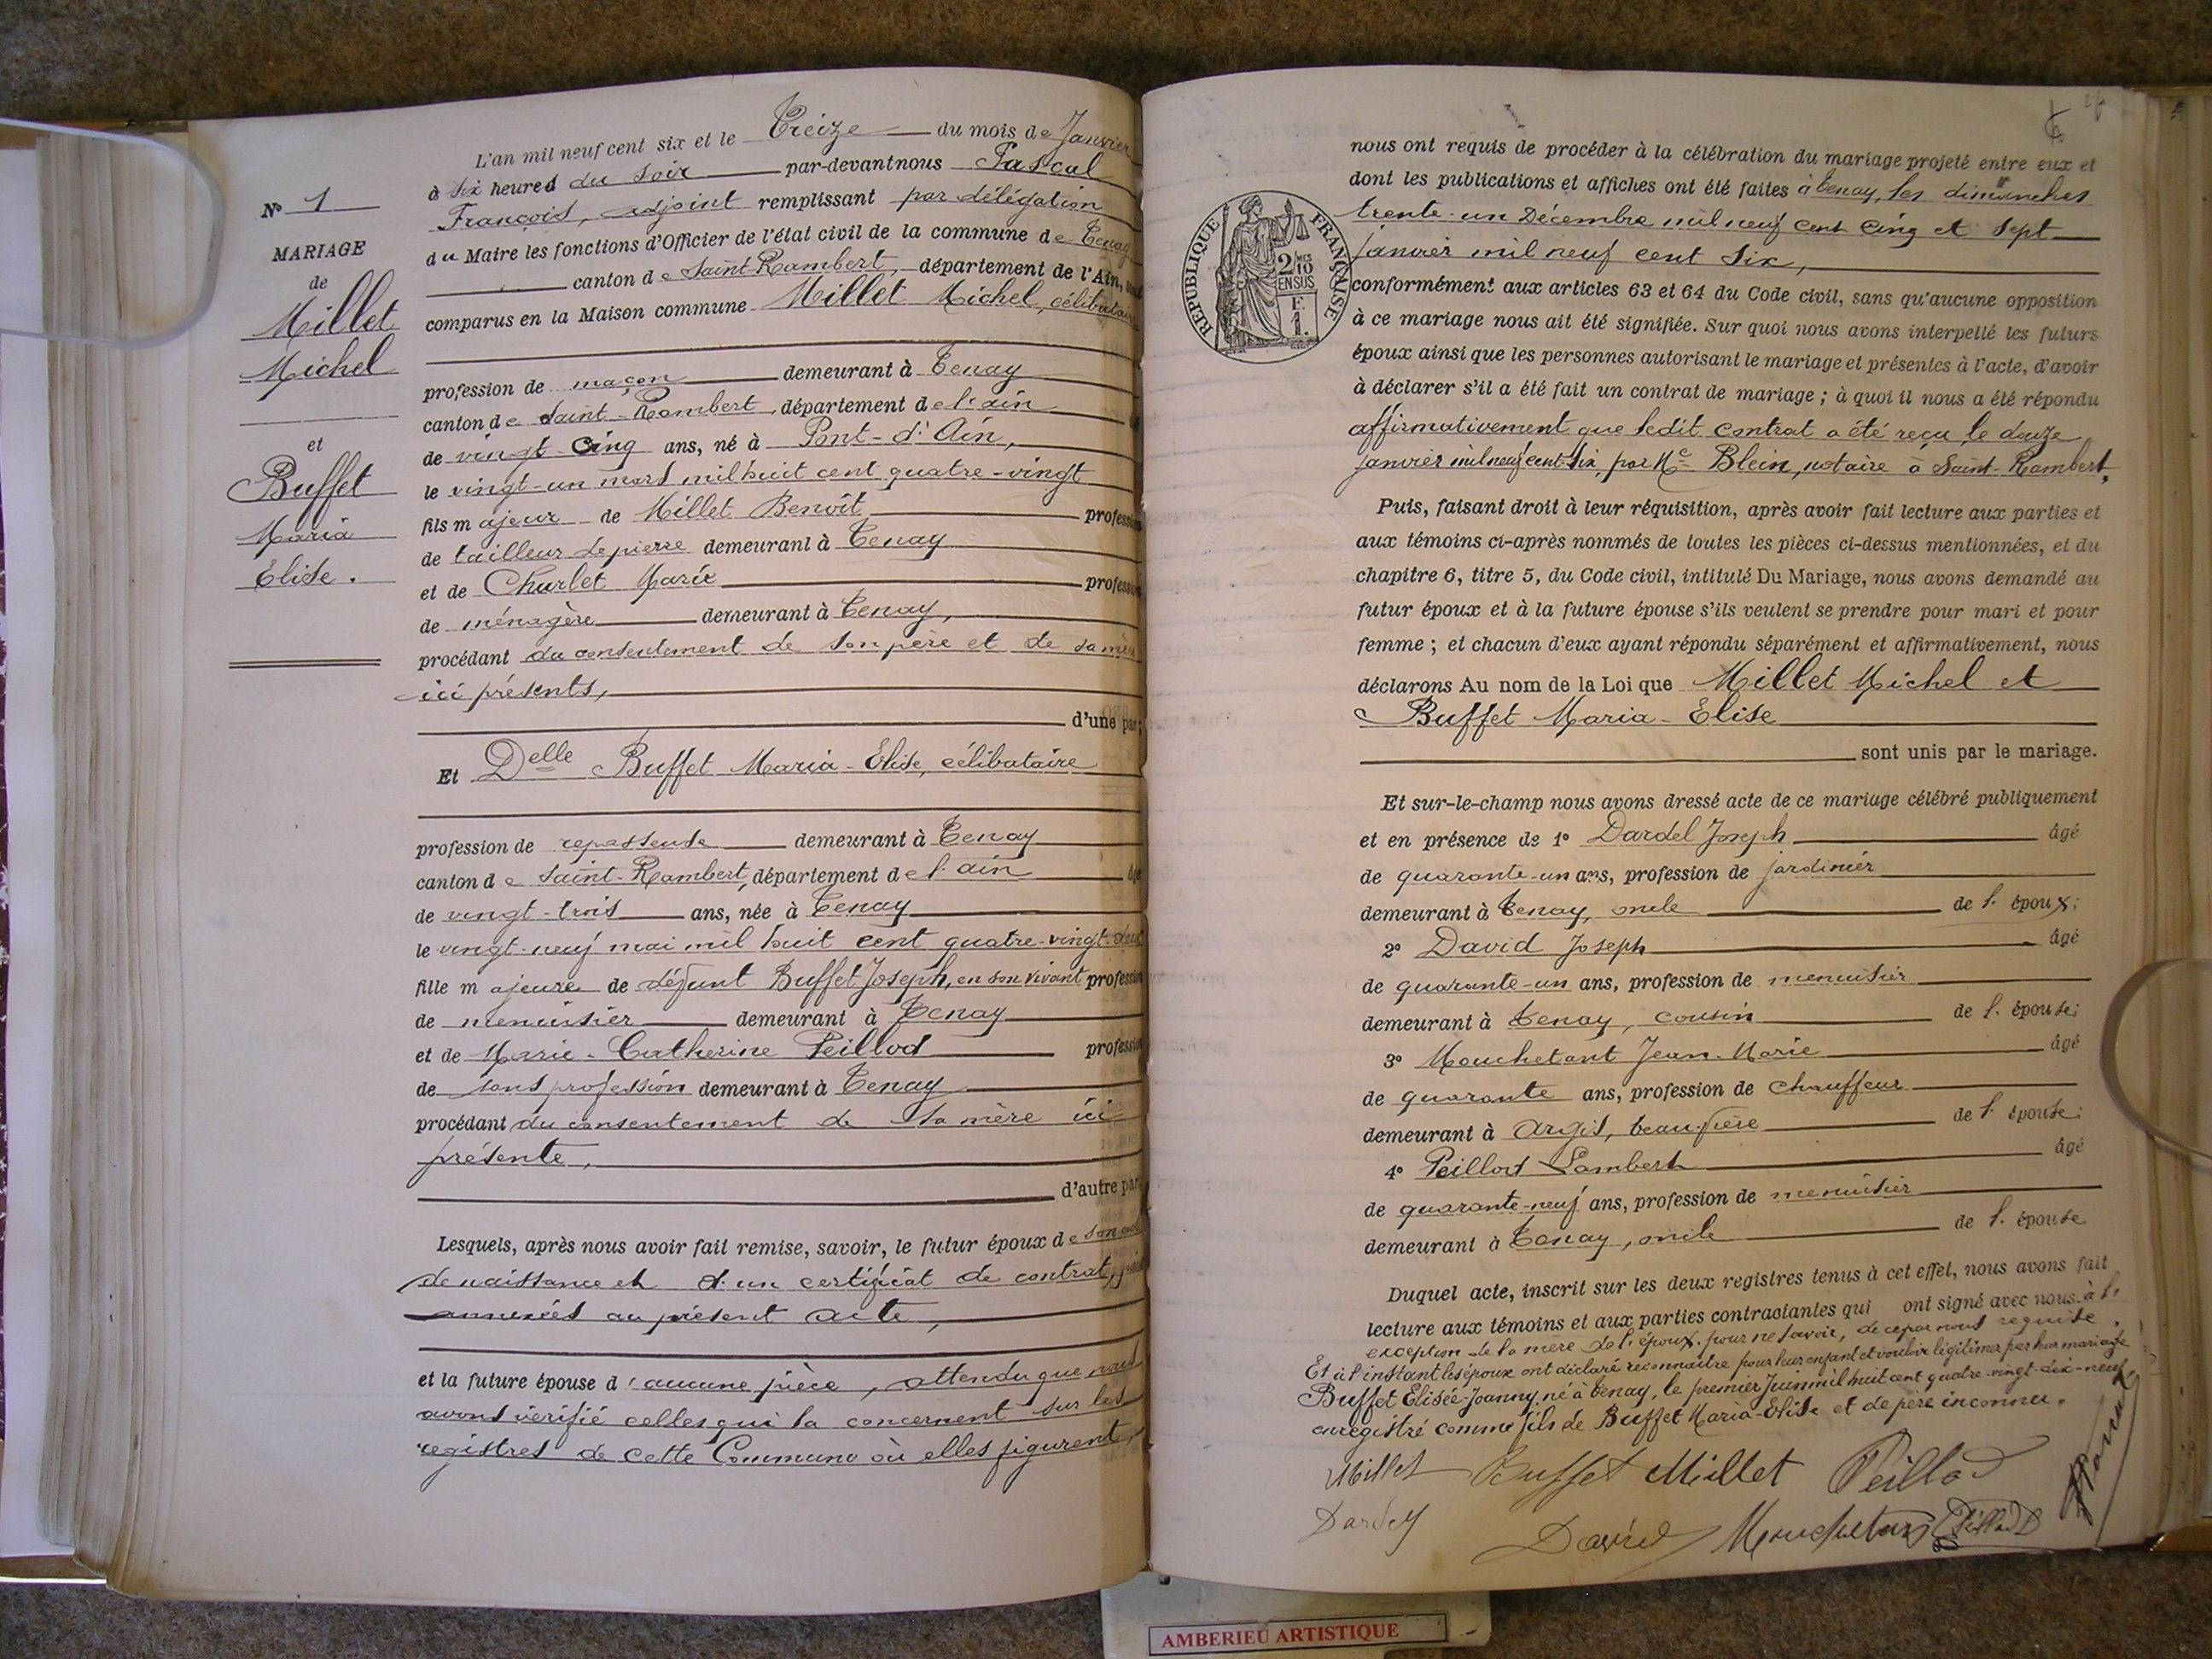 L'an mil neuf cent six et le Treize du mois de Janvier
à six heures du soir par-devant nous Pascal
François, adjoint remplissant par délégation
du Maire les fonctions d'Officier de l'état civil de la commune de Tenay
canton de Saint-Rambert, département de l'Ain,
comparus en la Maison commune Millet Michel, célibataire
profession de maçon demeurant à Tenay
canton de Saint-Rambert, département de l'ain
de vingt cinq ans, né à Pont-d'Ain,
le vingt-un mars mil huit cent quatre-vingt
fils majeur de Millet Benoît profession
de tailleur de pierre demeurant à Tenay
et de Charlet Marie profession
de ménagère demeurant à Tenay,
procédant du consentement de son père et de sa mère
ici présents,
d'une part;
Et Delle Buffet Maria-Elise, célibataire
profession de repasseuse demeurant à Tenay
canton de Saint-Rambert, département de l'ain
de vingt-trois ans, née à Tenay
le vingt-neuf mai mil huit cent quatre-vingt-deux
fille majeure de défunt Buffet Joseph, en son vivant profession
de menuisier demeurant à Tenay
et de Marie-Catherine Peillod profession
de sans profession demeurant à Tenay
procédant du consentement de sa mère ici
présente,
d'autre part
Lesquels, après nous avoir fait remise, savoir, le futur époux de son acte
de naissance et d'un certificat de contrat,
annexés au présent acte,
et la future épouse d'aucune pièce, attendu que nous
avons vérifié celles qui la concernent sur les
registres de cette Commune où elles figurent,
N° 1
MARIAGE
de
Millet
Michel
et
Buffet
Maria
Elise.
nous ont requis de procéder à la célébration du mariage projeté entre eux et
dont les publications et affiches ont été faites à Tenay, les dimanches
trente-un Décembre mil neuf cent cinq et sept
janvier mil neuf cent six,
conformément aux articles 63 et 64 du Code civil, sans qu'aucune opposition
à ce mariage nous ait été signifiée. Sur quoi nous avons interpellé les futurs
époux ainsi que les personnes autorisant le mariage et présentes à l'acte, d'avoir
à déclarer s'il a été fait un contrat de mariage ; à quoi il nous a été répondu
affirmativement que ledit contrat a été reçu le douze
janvier mil neuf cent-six, par Me Blein, notaire à Saint-Rambert,
Puis, faisant droit à leur réquisition, après avoir fait lecture aux parties et
aux témoins ci-après nommés de toutes les pièces ci-dessus mentionnées, et du
chapitre 6, titre 5, du Code civil, intitulé Du Mariage, nous avons demandé au
futur époux et à la future épouse s'ils veulent se prendre pour mari et pour
femme ; et chacun d'eux ayant répondu séparément et affirmativement, nous
déclarons Au nom de la Loi que Millet Michel et
Buffet Maria-Elise
sont unis par le mariage.
Et sur-le-champ nous avons dressé acte de ce mariage célébré publiquement
et en présence de 1° Dardel Joseph âgé
de quarante-un ans, profession de jardinier
demeurant à Tenay, oncle de l'époux;
2° David Joseph âgé
de quarante-un ans, profession de menuisier
demeurant à Tenay, cousin de l'épouse;
3° Mouchetant Jean-Marie âgé
de quarante ans, profession de chauffeur
demeurant à Argis, beau-frère de l'épouse;
4° Peillod Lambert âgé
de quarante-neuf ans, profession de menuisier
demeurant à Tenay, oncle de l'épouse
Duquel acte, inscrit sur les deux registres tenus à cet effet, nous avons fait
lecture aux témoins et aux parties contractantes qui ont signé avec nous à l'
exception de la mère de l'époux, pour ne savoir, de ce par nous requise.
Et à l'instant les époux ont déclaré reconnaître pour leur enfant et vouloir légitimer par leur mariage
Buffet Elisée-Joanny, né à Tenay, le premier Juin mil huit cent quatre-vingt-dix-neuf
enregistré comme fils de Buffet Maria-Elise et de père inconnu.
Millet Buffet Millet Peillod
Dardel David Mouchetant Peillod
RÉPUBLIQUE FRANÇAISE
2/10 MES
EN SUS
F
1.
AMBERIEU ARTISTIQUE